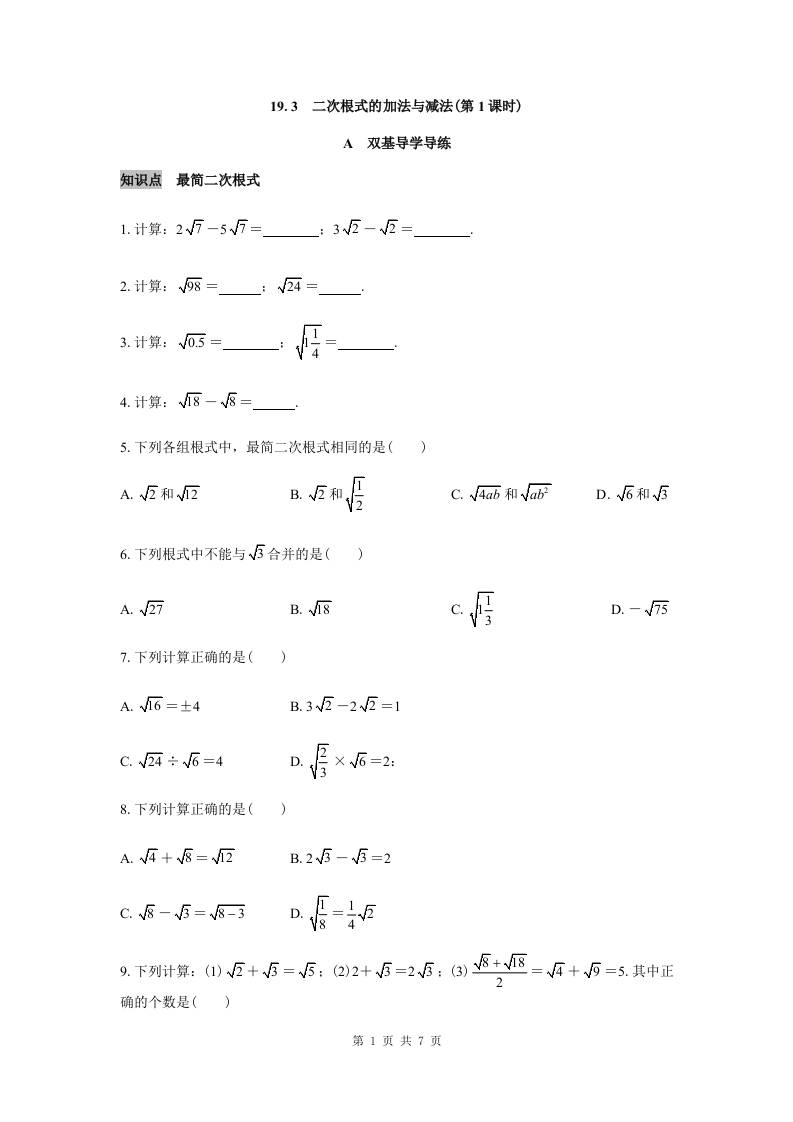 19.3 二次根式的加法与减法(第1课时)
A 双基导学导练
知识点 最简二次根式
1.计算：2√7－5√7＝________；3√2－√2＝________.
2.计算：√98＝______；√24＝______.
3.计算：√0.5＝________；√(1 1/4)＝________.
4.计算：√18－√8＝______.
5.下列各组根式中，最简二次根式相同的是( )
A. √2和√12 B. √2和√(1/2) C. √(4ab)和√(ab²) D. √6和√3
6.下列根式中不能与√3合并的是( )
A. √27 B. √18 C. √(1 1/3) D.－√75
7.下列计算正确的是( )
A. √16＝±4 B.3√2－2√2＝1
C. √24÷√6＝4 D. √(2/3)×√6＝2：
8.下列计算正确的是( )
A. √4＋√8＝√12 B.2√3－√3＝2
C. √8－√3＝√(8－3) D. √(1/8)＝1/4√2
9.下列计算：(1)√2＋√3＝√5；(2)2＋√3＝2√3；(3)(√8+√18)/2＝√4＋√9＝5.其中正
确的个数是( )
第 1 页 共 7 页